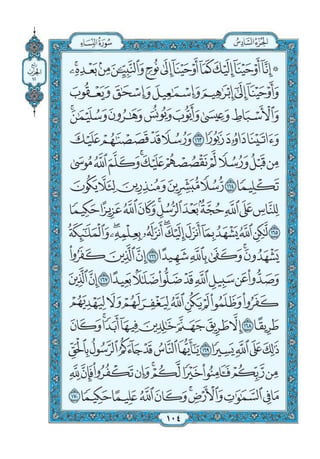 الجزء السادس
سورة النساء
۞ إِنَّا أَوْحَيْنَا إِلَيْكَ كَمَا أَوْحَيْنَا إِلَىٰ نُوحٍ وَالنَّبِيِّينَ مِنْ بَعْدِهِ ۚ
وَأَوْحَيْنَا إِلَىٰ إِبْرَاهِيمَ وَإِسْمَاعِيلَ وَإِسْحَاقَ وَيَعْقُوبَ
وَالْأَسْبَاطِ وَعِيسَىٰ وَأَيُّوبَ وَيُونُسَ وَهَارُونَ وَسُلَيْمَانَ ۚ
وَآتَيْنَا دَاوُودَ زَبُورًا ١٦٣ وَرُسُلًا قَدْ قَصَصْنَاهُمْ عَلَيْكَ
مِنْ قَبْلُ وَرُسُلًا لَمْ نَقْصُصْهُمْ عَلَيْكَ ۚ وَكَلَّمَ اللَّهُ مُوسَىٰ
تَكْلِيمًا ١٦٤ رُسُلًا مُبَشِّرِينَ وَمُنْذِرِينَ لِئَلَّا يَكُونَ
لِلنَّاسِ عَلَى اللَّهِ حُجَّةٌ بَعْدَ الرُّسُلِ ۚ وَكَانَ اللَّهُ عَزِيزًا حَكِيمًا
١٦٥ لَٰكِنِ اللَّهُ يَشْهَدُ بِمَا أَنْزَلَ إِلَيْكَ ۖ أَنْزَلَهُ بِعِلْمِهِ ۖ وَالْمَلَائِكَةُ
يَشْهَدُونَ ۚ وَكَفَىٰ بِاللَّهِ شَهِيدًا ١٦٦ إِنَّ الَّذِينَ كَفَرُوا
وَصَدُّوا عَنْ سَبِيلِ اللَّهِ قَدْ ضَلُّوا ضَلَالًا بَعِيدًا ١٦٧ إِنَّ الَّذِينَ
كَفَرُوا وَظَلَمُوا لَمْ يَكُنِ اللَّهُ لِيَغْفِرَ لَهُمْ وَلَا لِيَهْدِيَهُمْ
طَرِيقًا ١٦٨ إِلَّا طَرِيقَ جَهَنَّمَ خَالِدِينَ فِيهَا أَبَدًا ۚ وَكَانَ
ذَٰلِكَ عَلَى اللَّهِ يَسِيرًا ١٦٩ يَا أَيُّهَا النَّاسُ قَدْ جَاءَكُمُ الرَّسُولُ بِالْحَقِّ
مِنْ رَبِّكُمْ فَآمِنُوا خَيْرًا لَكُمْ ۚ وَإِنْ تَكْفُرُوا فَإِنَّ لِلَّهِ
مَا فِي السَّمَاوَاتِ وَالْأَرْضِ ۚ وَكَانَ اللَّهُ عَلِيمًا حَكِيمًا ١٧٠
١٠٤